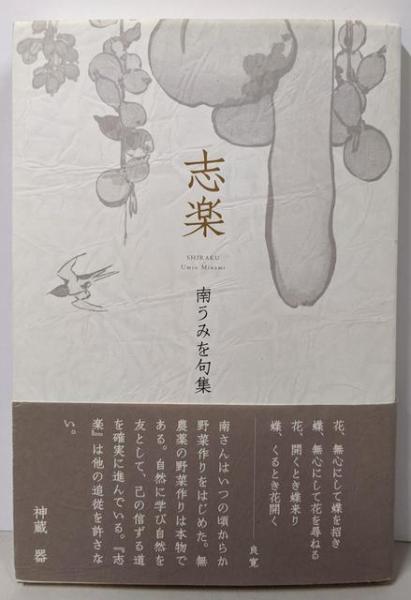 志楽
SHIRAKU
Umio Minami
南うみを句集
花、無心にして蝶を招き
蝶、無心にして花を尋ねる
花、開くとき蝶来り
蝶、くるとき花開く
良寛
南さんはいつの頃からか
野菜作りをはじめた。無
農薬の野菜作りは本物で
ある。自然に学び自然を
友として、己の信ずる道
を確実に進んでいる。『志
楽』は他の追従を許さな
い。
神蔵 器